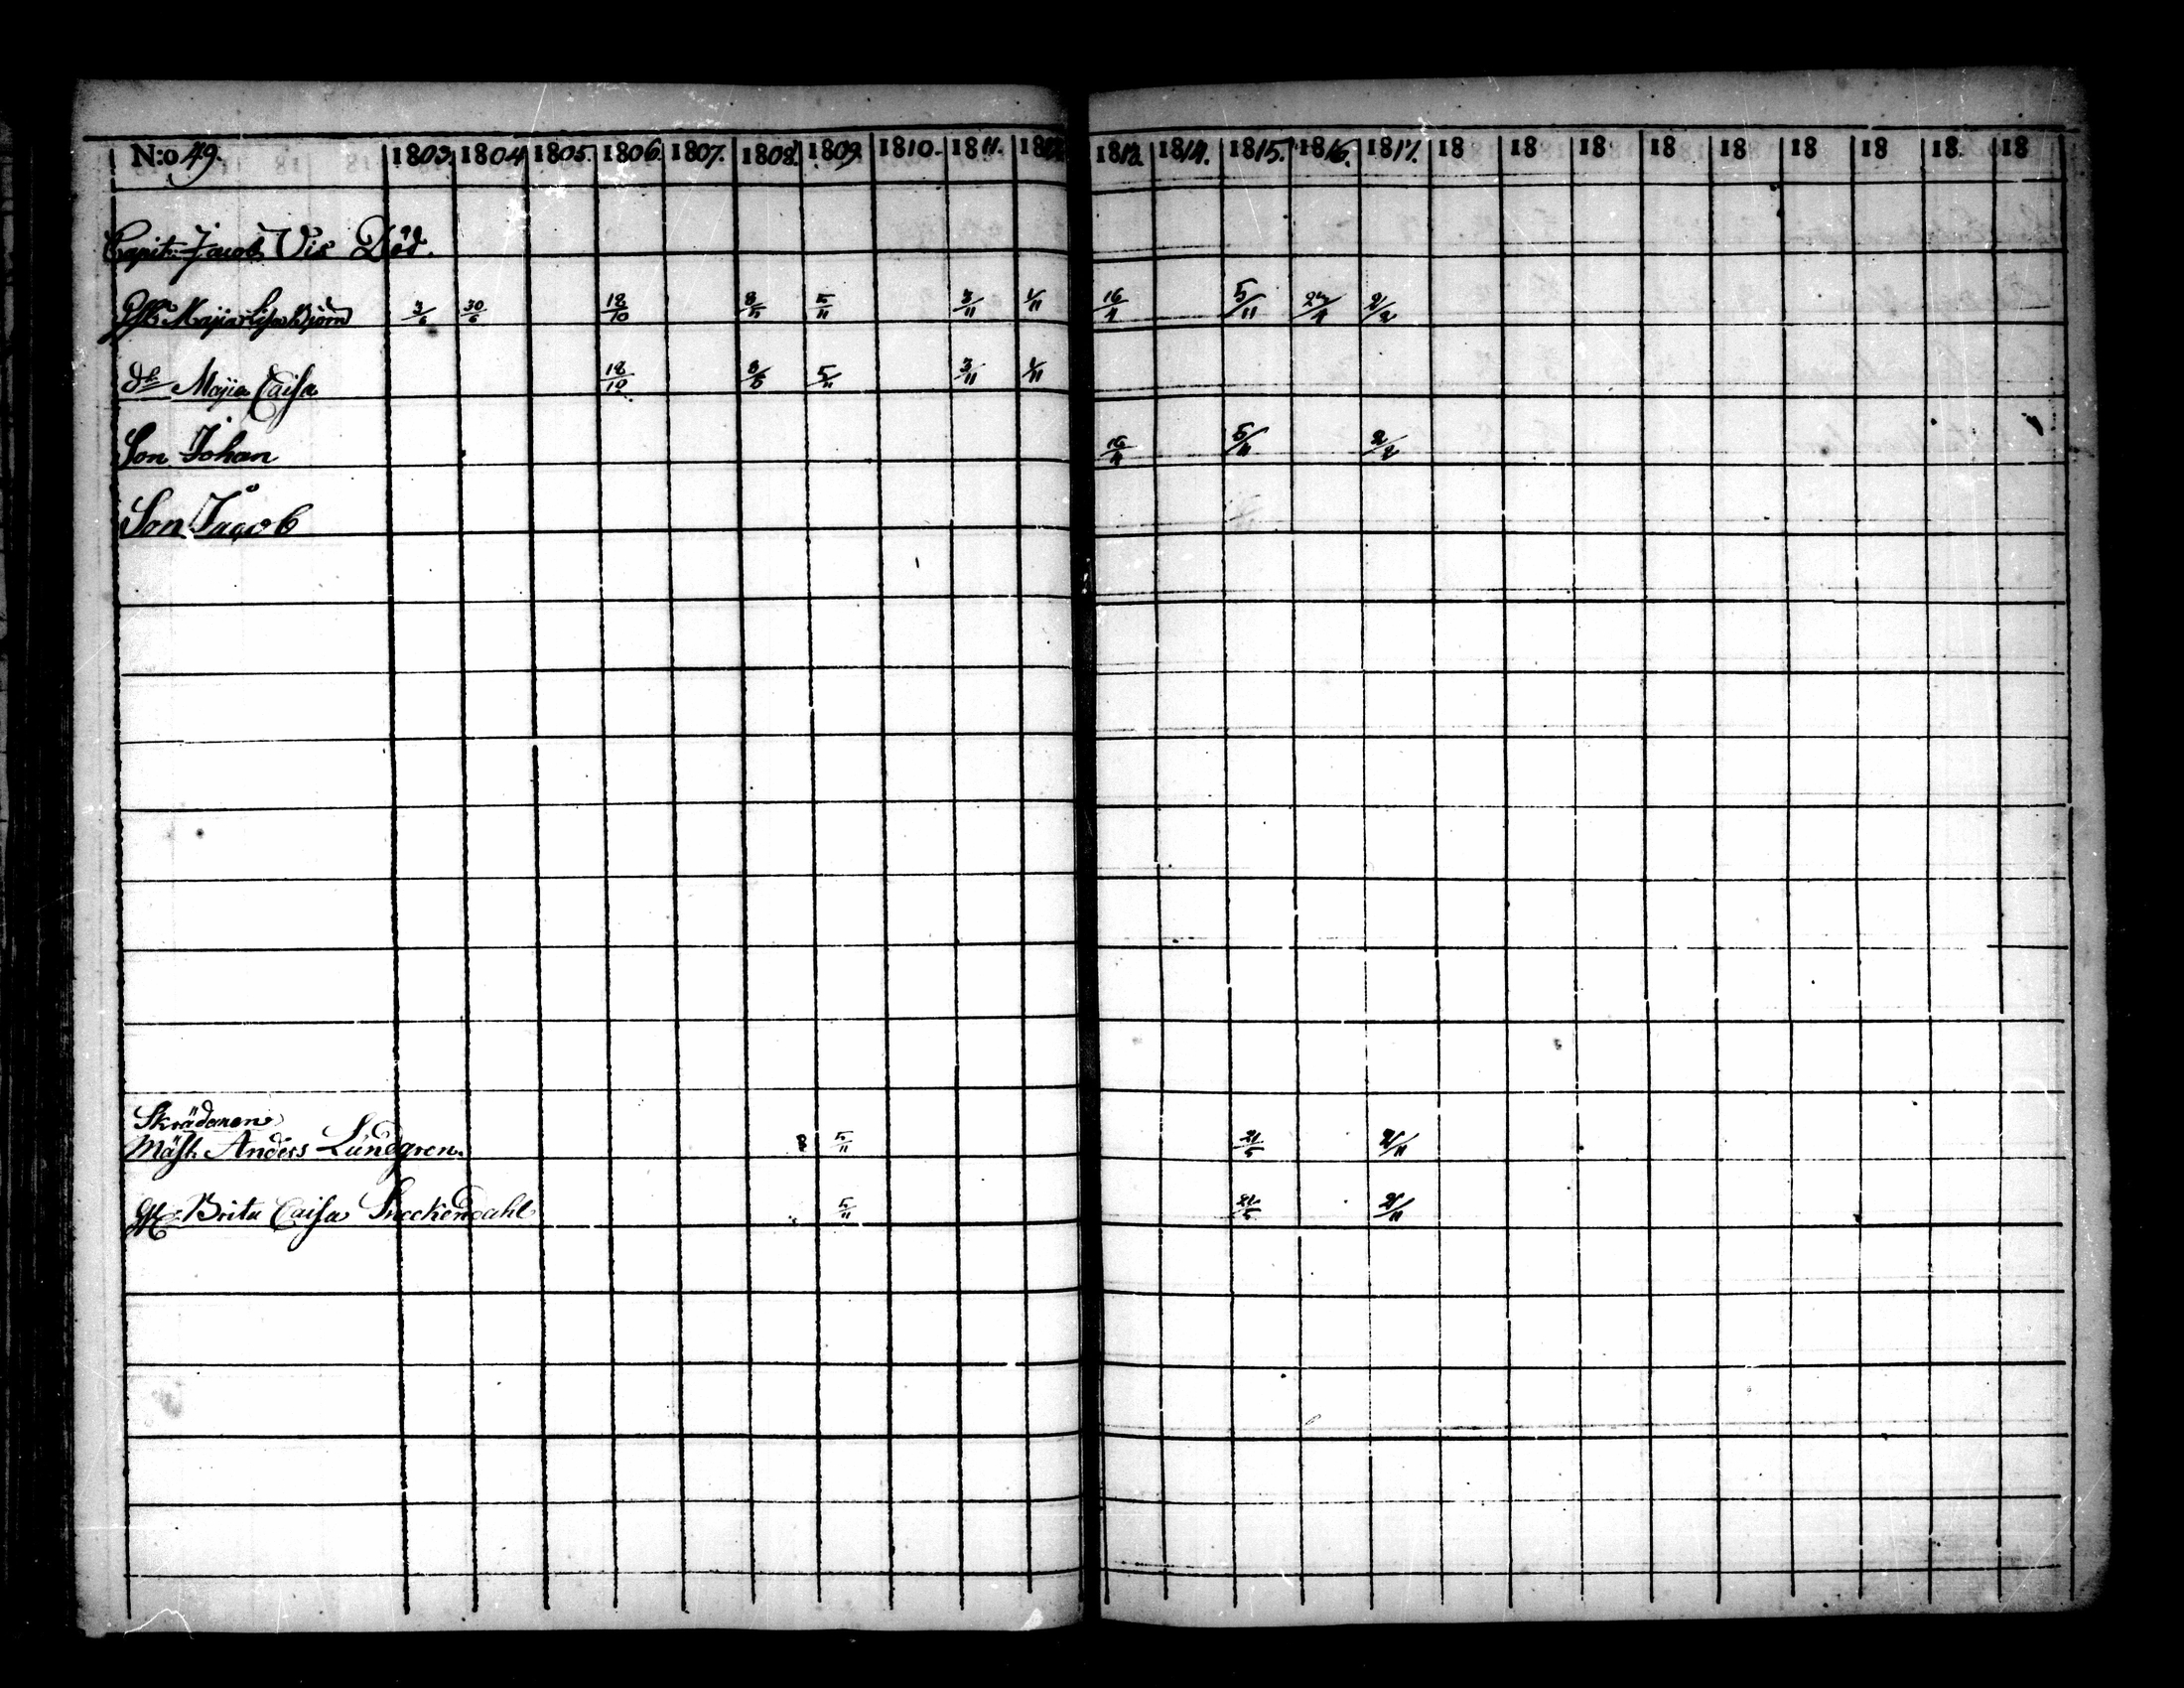 N:o 49. 1803. 1804 1805. 1806. 1807. 1808. 1809. 1810. 1811. 1812. 1813. 1814. 1815. 1816. 1817. 18 18 18 18 18 18 18 18 18
Capit: Jacob Vis Död.
Majia Lisa Björn 3/6 30/6 18/10 5/11 3/11 1/11 16/4 5/11 24/4 2/2
dr Majia Caisa 18/10 5/11 3/11 1/11
Son Johan 16/4 5/11 2/2
Son Jacob
Skrädaren
Mäst. Anders Lundgren. 5/11 21/5 2/11
Brita Caisa Sneckendahl 5/11 21/5 2/11